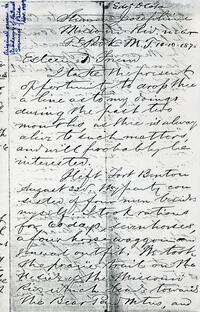 Steamer Josephine
Missouri Riv. near
Ft. Peck M.T. 10-10-187
Esteemed Friend
I take the present
opportunity to drop thee
a line as to my doings
during the past two
months as thee is always
alive to such matters
and will probably be
interested.
I left Fort Benton
August 22d. My party con
sisted of four men besides
myself. I took rations
for 60 days, seven horses,
a four horse waggon and
general outfit. We took
the prairie trail on the
North side of Missouri
River, which leads towards
the Bear Paw Mtns, and